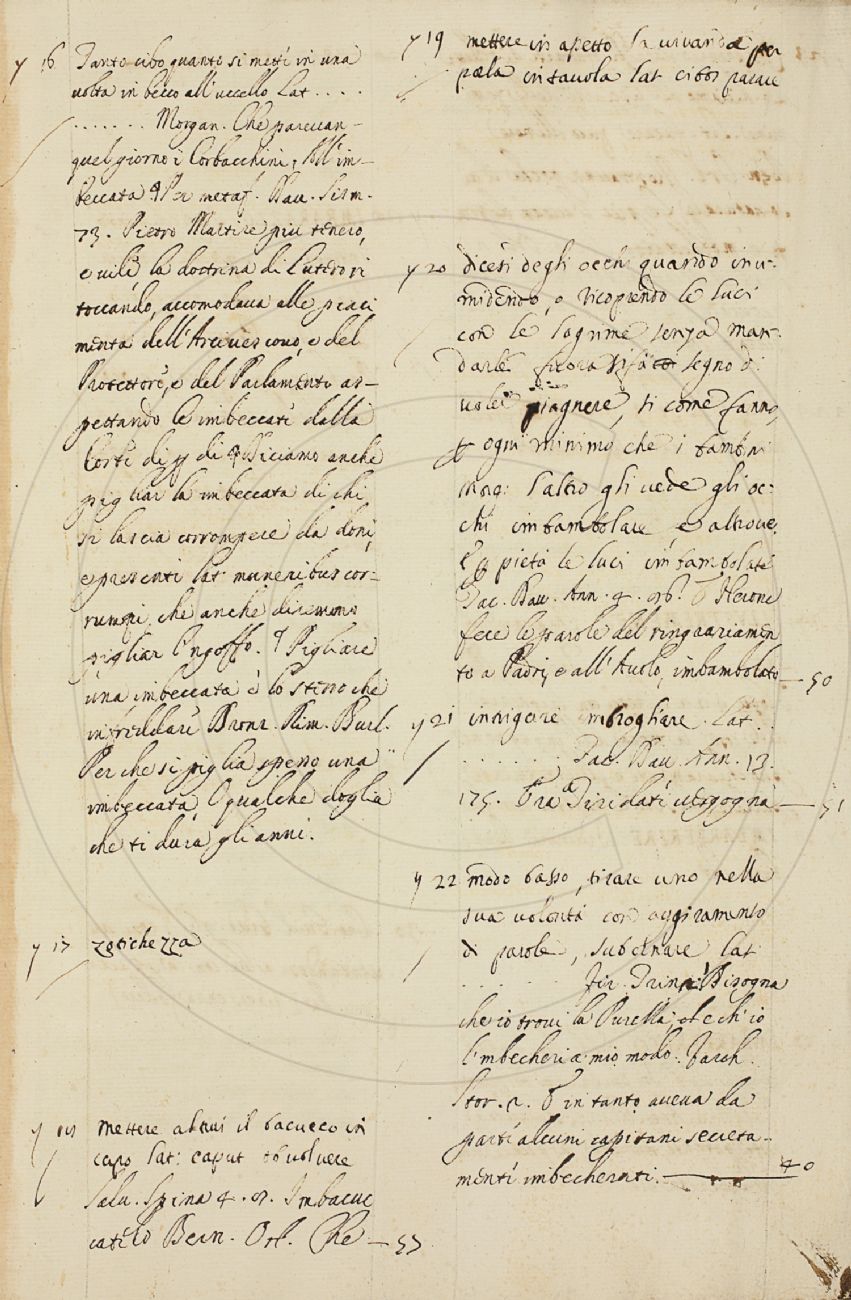 y 16 Tanto cibo, quanto si metti in una
volta in becco all'uccello Lat . . . .
. . . . . . . Morgan. Che parevan
quel giorno i Corbacchini, All'im-
beccata Per metaf. Dav. Scism.
73. Pietro Martire più tenero,
e vile la dottrina di Lutero ri
toccando, accomodava alle piaci
menta dell'Arcivescovo, e del
Protettore, e del Parlamento as-
pettando le imbeccati dalla
Corti di dì Diciamo anche
pigliar la imbeccata di chi
si lascia corrompere da doni,
e presenti Lat: muneribus cor-
rumpi, che anche diremmo
pigliar l'ingoffo. Pigliare
una imbeccata è lo stesso che
infreddare Bronz. Rim. Burl.
Perche si piglia spesso una
imbeccata, O qualche doglia
che ti dura gli anni.
y 17 zotichezza
y mettere altrui il bacucco in
capo Lat: caput obvolvere
Salv. Spina 4. Imbacuc
catilo Bern. Orl. Che — 57
y 19 mettere in assetto la vivanda per
porla in tavola Lat cibos parare
y 20 dicesi degli occhi quando inu-
midendo, o ricoprendo le luci
con le lagrime senza man-
darle fuora segno di
voler piagnere, si come fanno
ogni minimo che i bambini
Morg: l'altro gli vede gli oc-
chi imbambolare, e altrove,
E pietà le luci imbambolate
Tac. Dav. Ann. 4. 96. E Nerone
fece le parole del ringraziamen
to a Padri, e all'Avolo, imbambolato — 50
y 21 intrigare imbrogliare. Lat . .
. . . . . . . Tac. Dav. Ann. 13.
175. Era Tiridati vergogna — 51
y 22 modo basso, tirare uno nella
sua volontà con aggiramento
di parole, subornare, Lat
. . . . . . Fir. Trin. Bisogna
che io trovi la Purella, et ch'io
l'imbecheri a mio modo. Varch.
Stor. 2. E in tanto aveva da
parti alcuni capitani secreta-
menti imbecherati. — 40